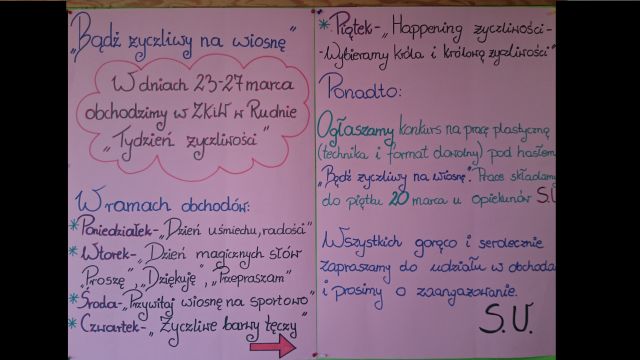 „Bądź życzliwy na wiosnę"
W dniach 23-27 marca
obchodzimy w ZKiW w Rudnie
„Tydzień życzliwości"
W ramach obchodów:
* Poniedziałek - „Dzień uśmiechu, radości"
* Wtorek - „Dzień magicznych słów
„Proszę", „Dziękuję", „Przepraszam"
* Środa - „Przywitaj wiosnę na sportowo"
* Czwartek - „Życzliwe barwy tęczy"
* Piątek - „Happening życzliwości -
- Wybieramy króla i królową życzliwości"
Ponadto:
Ogłaszamy konkurs na pracę plastyczną
(technika i format dowolny) pod hasłem
„Bądź życzliwy na wiosnę". Prace składamy
do piątku 20 marca u opiekunów S.U
Wszystkich gorąco i serdecznie
zapraszamy do udziału w obchoda
i prosimy o zaangażowanie.
S.U.